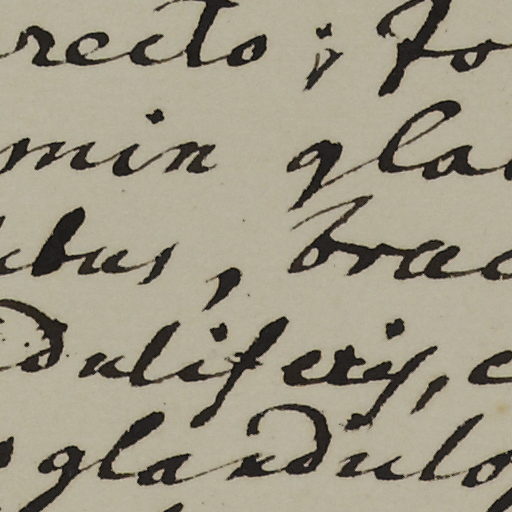 recto; fo
min gla
ibus, brac
duliferis, c
glandulo